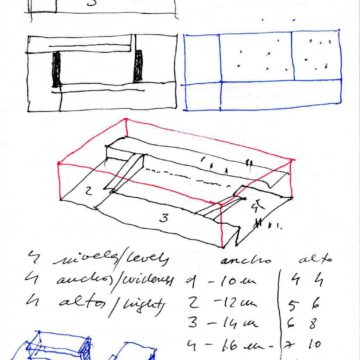 3
2
3
4
4 niveles/levels ancho alto
4 anchos/widones 1 - 10 m 4 4
4 altos/hights 2 - 12 m 5 6
3 - 14 m 6 8
4 - 16 m - 7 10